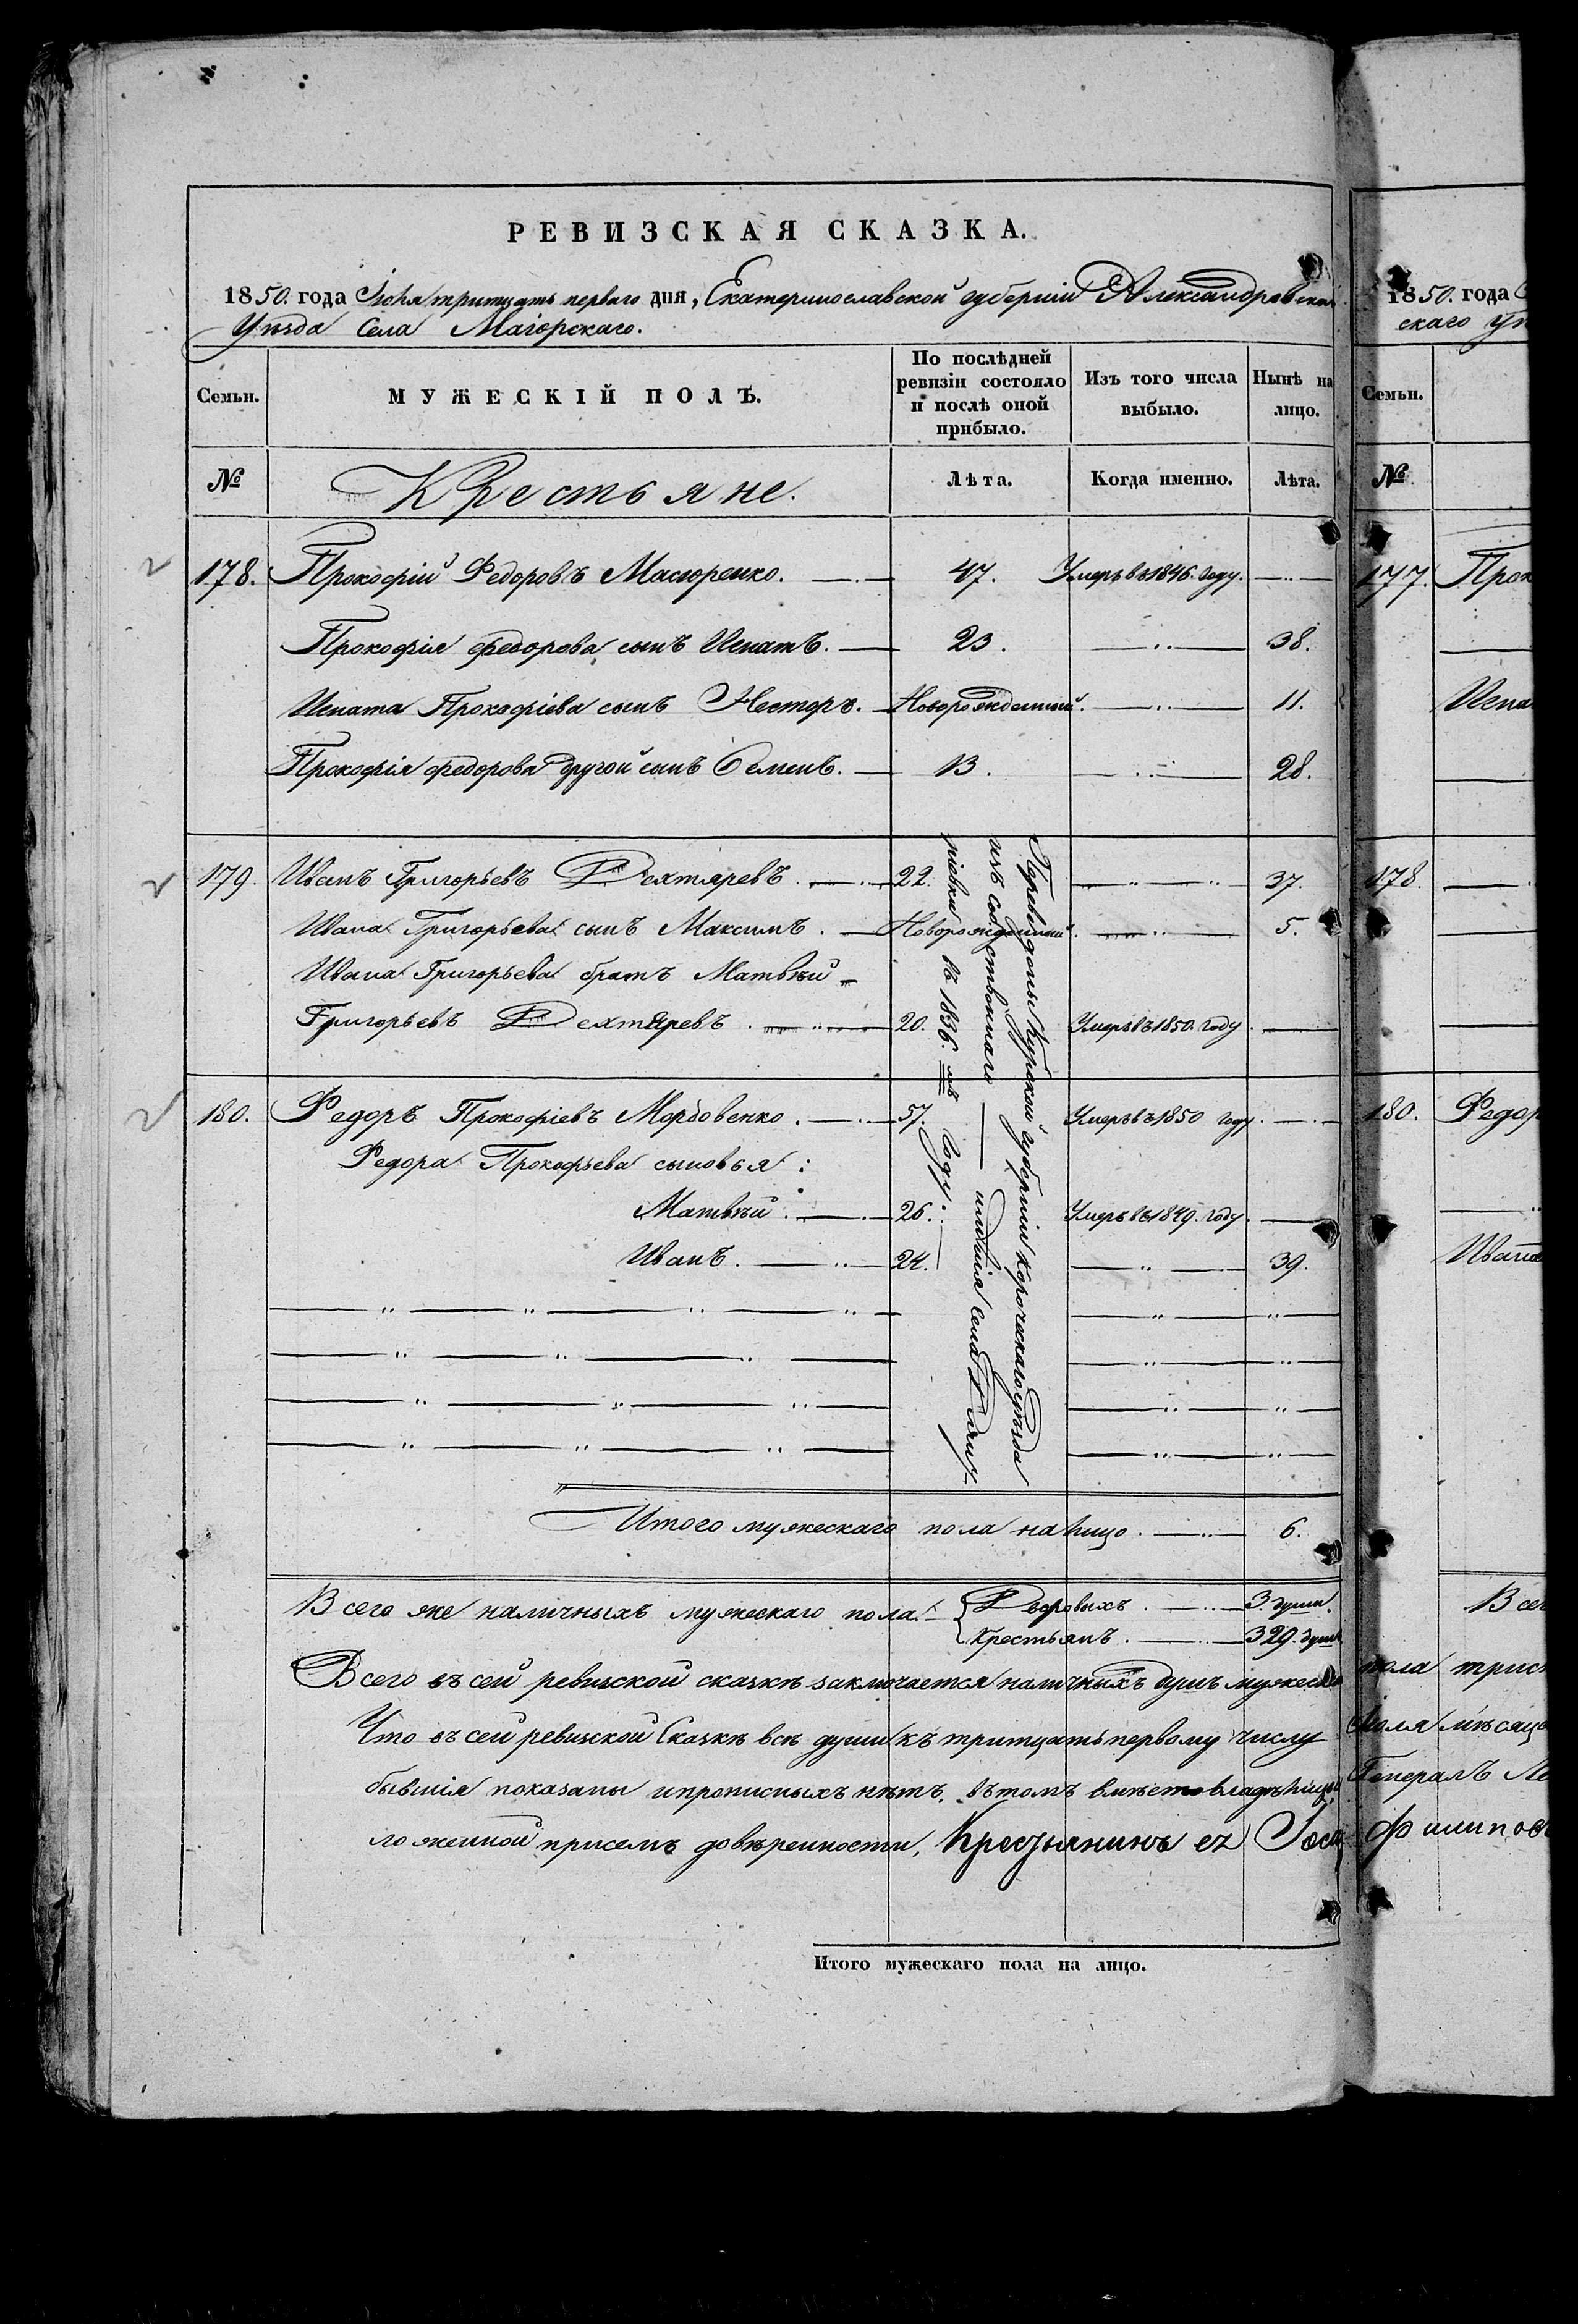 РЕВИЗСКАЯ СКАЗКА.
1850. года Іюля тритцать перваго дня, Екатеринославской губерніи Александровскаго
Уѣзда Села Маіорскаго.
Семьи.
МУЖЕСКІЙ ПОЛЪ.
По послѣдней ревизіи состояло и послѣ оной прибыло.
Изъ того числа выбыло.
Нынѣ на лицо.
№
Крестьяне.
Лѣта.
Когда именно.
Лѣта.
178. Прокофій Федоровъ Масюренко. 47. Умеръ въ 1846. Году.
Прокофія Федорова сынъ Игнатъ. 23. 38.
Игната Прокофіева сынъ Несторъ. Новорожденный. 11.
Прокофія Федорова другой сынъ Семенъ. 13. 28.
179. Иванъ Григорьевъ Дехтяревъ. 22. 37.
Ивана Григорьева сынъ Максимъ. Новорожденный. 5.
Ивана Григорьева братъ Матвѣй
Григорьевъ Дехтяревъ. 20. Умеръ въ 1850. Году.
180. Федоръ Прокофіевъ Мордовенко. 57. Умеръ въ 1850 году.
Федора Прокофьева сыновья:
Матвѣй. 26. Умеръ въ 1849. Году.
Иванъ. 24. 39.
Переведены Курской губерніи Корочанскаго уѣзда
изъ собственнаго имѣнія села
въ 1836. мъ Году.
Итого мужескаго пола на лицо. 6.
Всего же наличныхъ мужескаго пола. Дворовыхъ. 3. души.
Крестьянъ. 329. душъ
Всего въ сей ревизской сказкѣ заключается наличныхъ душъ мужеска
Что въ сей ревизской Сказкѣ всѣ души къ тритцать первому числу
бывшія показаны и прописныхъ нѣтъ, въ томъ вмѣсто владѣлицы
ложенной при семъ довѣренности, Кресьянинъ ез Госп
Итого мужескаго пола на лицо.
1850. года
скаго Уѣ
Семьи.
№
177. Прок
Игна
178.
180. Федор
Ивана
Всег
пола трис
Іюля мѣсяца
Генералъ Ле
Филипов